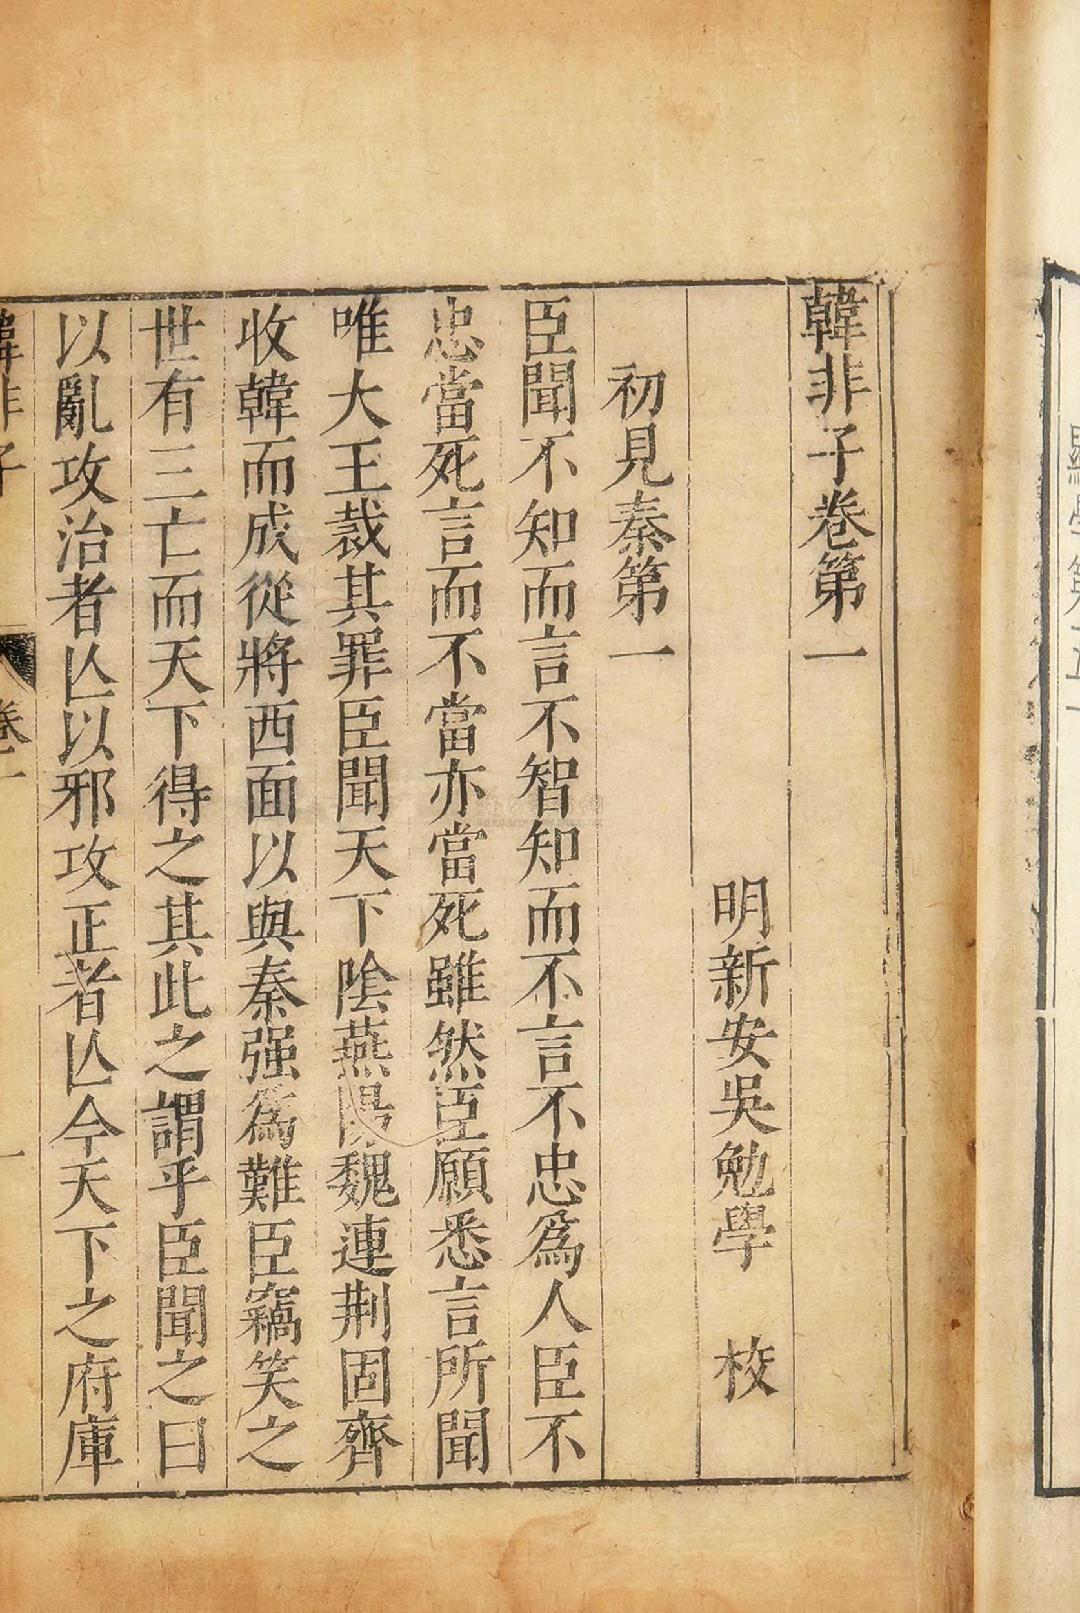 韓非子卷第一
明新安吳勉學 校
初見秦第一
臣聞不知而言不智知而不言不忠爲人臣不
忠當死言而不當亦當死雖然臣願悉言所聞
唯大王裁其罪臣聞天下陰燕陽魏連荆固齊
收韓而成從將西面以與秦强爲難臣竊笑之
世有三亡而天下得之其此之謂乎臣聞之曰
以亂攻治者亾以邪攻正者亾今天下之府庫
韓非子
卷一
一